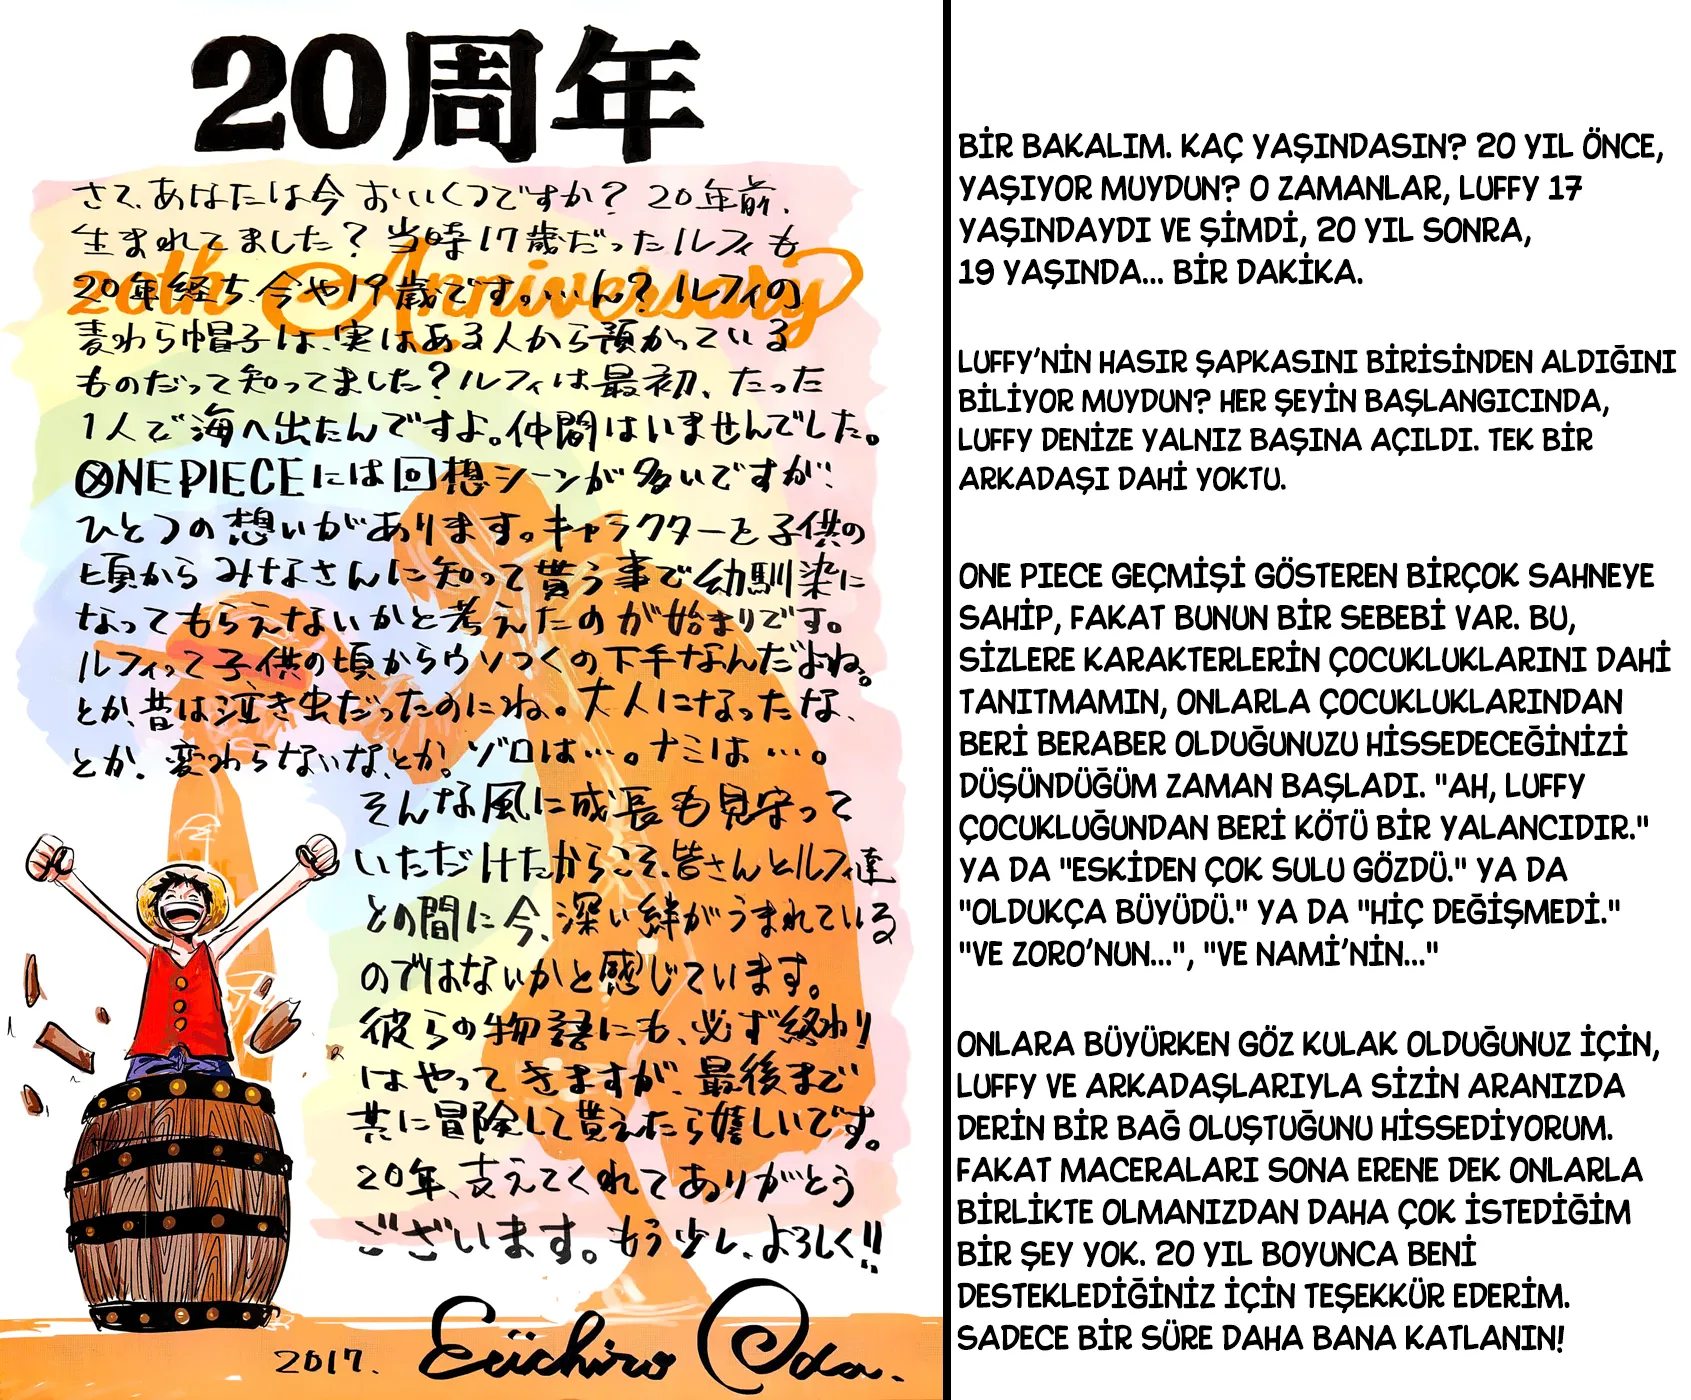 20周年
さて、あなたは今おいくつですか? 20年前、
生まれてました? 当時17歳だったルフィも
20th Anniversary
20年経ち、今や19歳です。…ん? ルフィの
麦わら帽子は、実はある人から預かっている
ものだって知ってました? ルフィは最初、たった
1人で海へ出たんですよ。仲間はいませんでした。
ONE PIECEには回想シーンが多いですが、
ひとつの想いがあります。キャラクターを子供の
頃からみなさんに知って貰う事で幼馴染に
なってもらえないかと考えたのが始まりです。
ルフィって子供の頃からウソつくの下手なんだよね。
とか、昔は泣き虫だったのにね。大人になったな、
とか、変わらないな、とか。ゾロは…。ナミは…。
そんな風に成長も見守って
いただけたからこそ、皆さんとルフィ達
との間に今、深い絆がうまれている
のではないかと感じています。
彼らの物語にも、必ず終わり
はやってきますが、最後まで
共に冒険して貰えたら嬉しいです。
20年、支えてくれてありがとう
ございます。もう少し、よろしく!!
2017. Eiichiro Oda.
BİR BAKALIM. KAÇ YAŞINDASIN? 20 YIL ÖNCE,
YAŞIYOR MUYDUN? O ZAMANLAR, LUFFY 17
YAŞINDAYDI VE ŞİMDİ, 20 YIL SONRA,
19 YAŞINDA... BİR DAKİKA.
LUFFY'NİN HASIR ŞAPKASINI BİRİSİNDEN ALDIĞINI
BİLİYOR MUYDUN? HER ŞEYİN BAŞLANGICINDA,
LUFFY DENİZE YALNIZ BAŞINA AÇILDI. TEK BİR
ARKADAŞI DAHİ YOKTU.
ONE PIECE GEÇMİŞİ GÖSTEREN BİRÇOK SAHNEYE
SAHİP, FAKAT BUNUN BİR SEBEBİ VAR. BU,
SİZLERE KARAKTERLERİN ÇOCUKLUKLARINI DAHİ
TANITMAMIN, ONLARLA ÇOCUKLUKLARINDAN
BERİ BERABER OLDUĞUNUZU HİSSEDECEĞİNİZİ
DÜŞÜNDÜĞÜM ZAMAN BAŞLADI. "AH, LUFFY
ÇOCUKLUĞUNDAN BERİ KÖTÜ BİR YALANCIDIR."
YA DA "ESKİDEN ÇOK SULU GÖZDÜ." YA DA
"OLDUKÇA BÜYÜDÜ." YA DA "HİÇ DEĞİŞMEDİ."
"VE ZORO'NUN...", "VE NAMİ'NİN..."
ONLARA BÜYÜRKEN GÖZ KULAK OLDUĞUNUZ İÇİN,
LUFFY VE ARKADAŞLARIYLA SİZİN ARANIZDA
DERİN BİR BAĞ OLUŞTUĞUNU HİSSEDİYORUM.
FAKAT MACERALARI SONA ERENE DEK ONLARLA
BİRLİKTE OLMANIZDAN DAHA ÇOK İSTEDİĞİM
BİR ŞEY YOK. 20 YIL BOYUNCA BENİ
DESTEKLEDİĞİNİZ İÇİN TEŞEKKÜR EDERİM.
SADECE BİR SÜRE DAHA BANA KATLANIN!